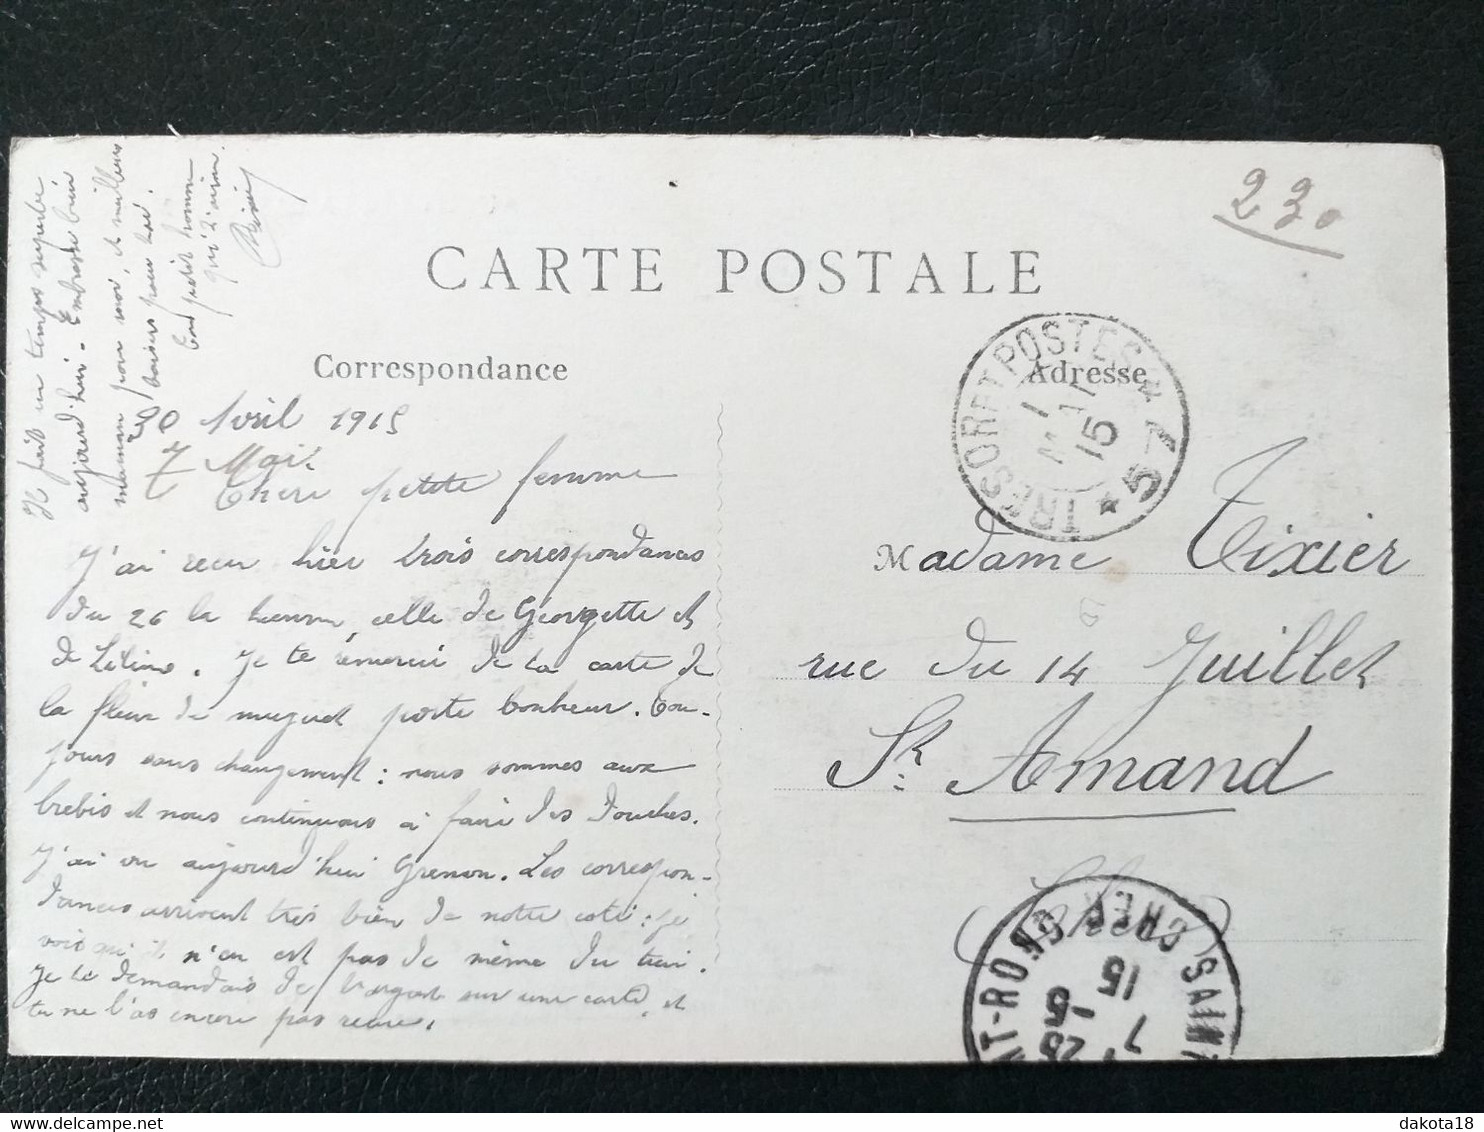 CARTE POSTALE
Correspondance
Adresse
230
30 Avril 1915
7 Mai
Chere petite femme
J'ai recu hier trois correspondances
du 26 la tienne, celle de Georgette et
de . Je te remercie de ta carte de
la fleur de muguet porte bonheur. Tou-
jours sans changement : nous sommes aux
brebis et nous continuons à faire des douches.
J'ai vu aujourd'hui Grenon. Les correspon-
dances arrivent très bien de notre coté : je
vois qu'il n'en est pas de même du tien.
Je te demandais de l'argent sur une carte, et
tu ne l'as encore pas recue.
Il fait un temps superbe
aujourd'hui - Embrasse bien
maman pour moi, et meilleurs
baisers pour toi.
Ton petit homme
qui t'aime.
TRESOR ET POSTES
1
MAI
15
* 57 *
Madame Tixier
rue du 14 Juillet
St. Amand
(Cher)
SAINT-AMAND-MONT-ROND CHER
25
7 - 5
15
dakota18